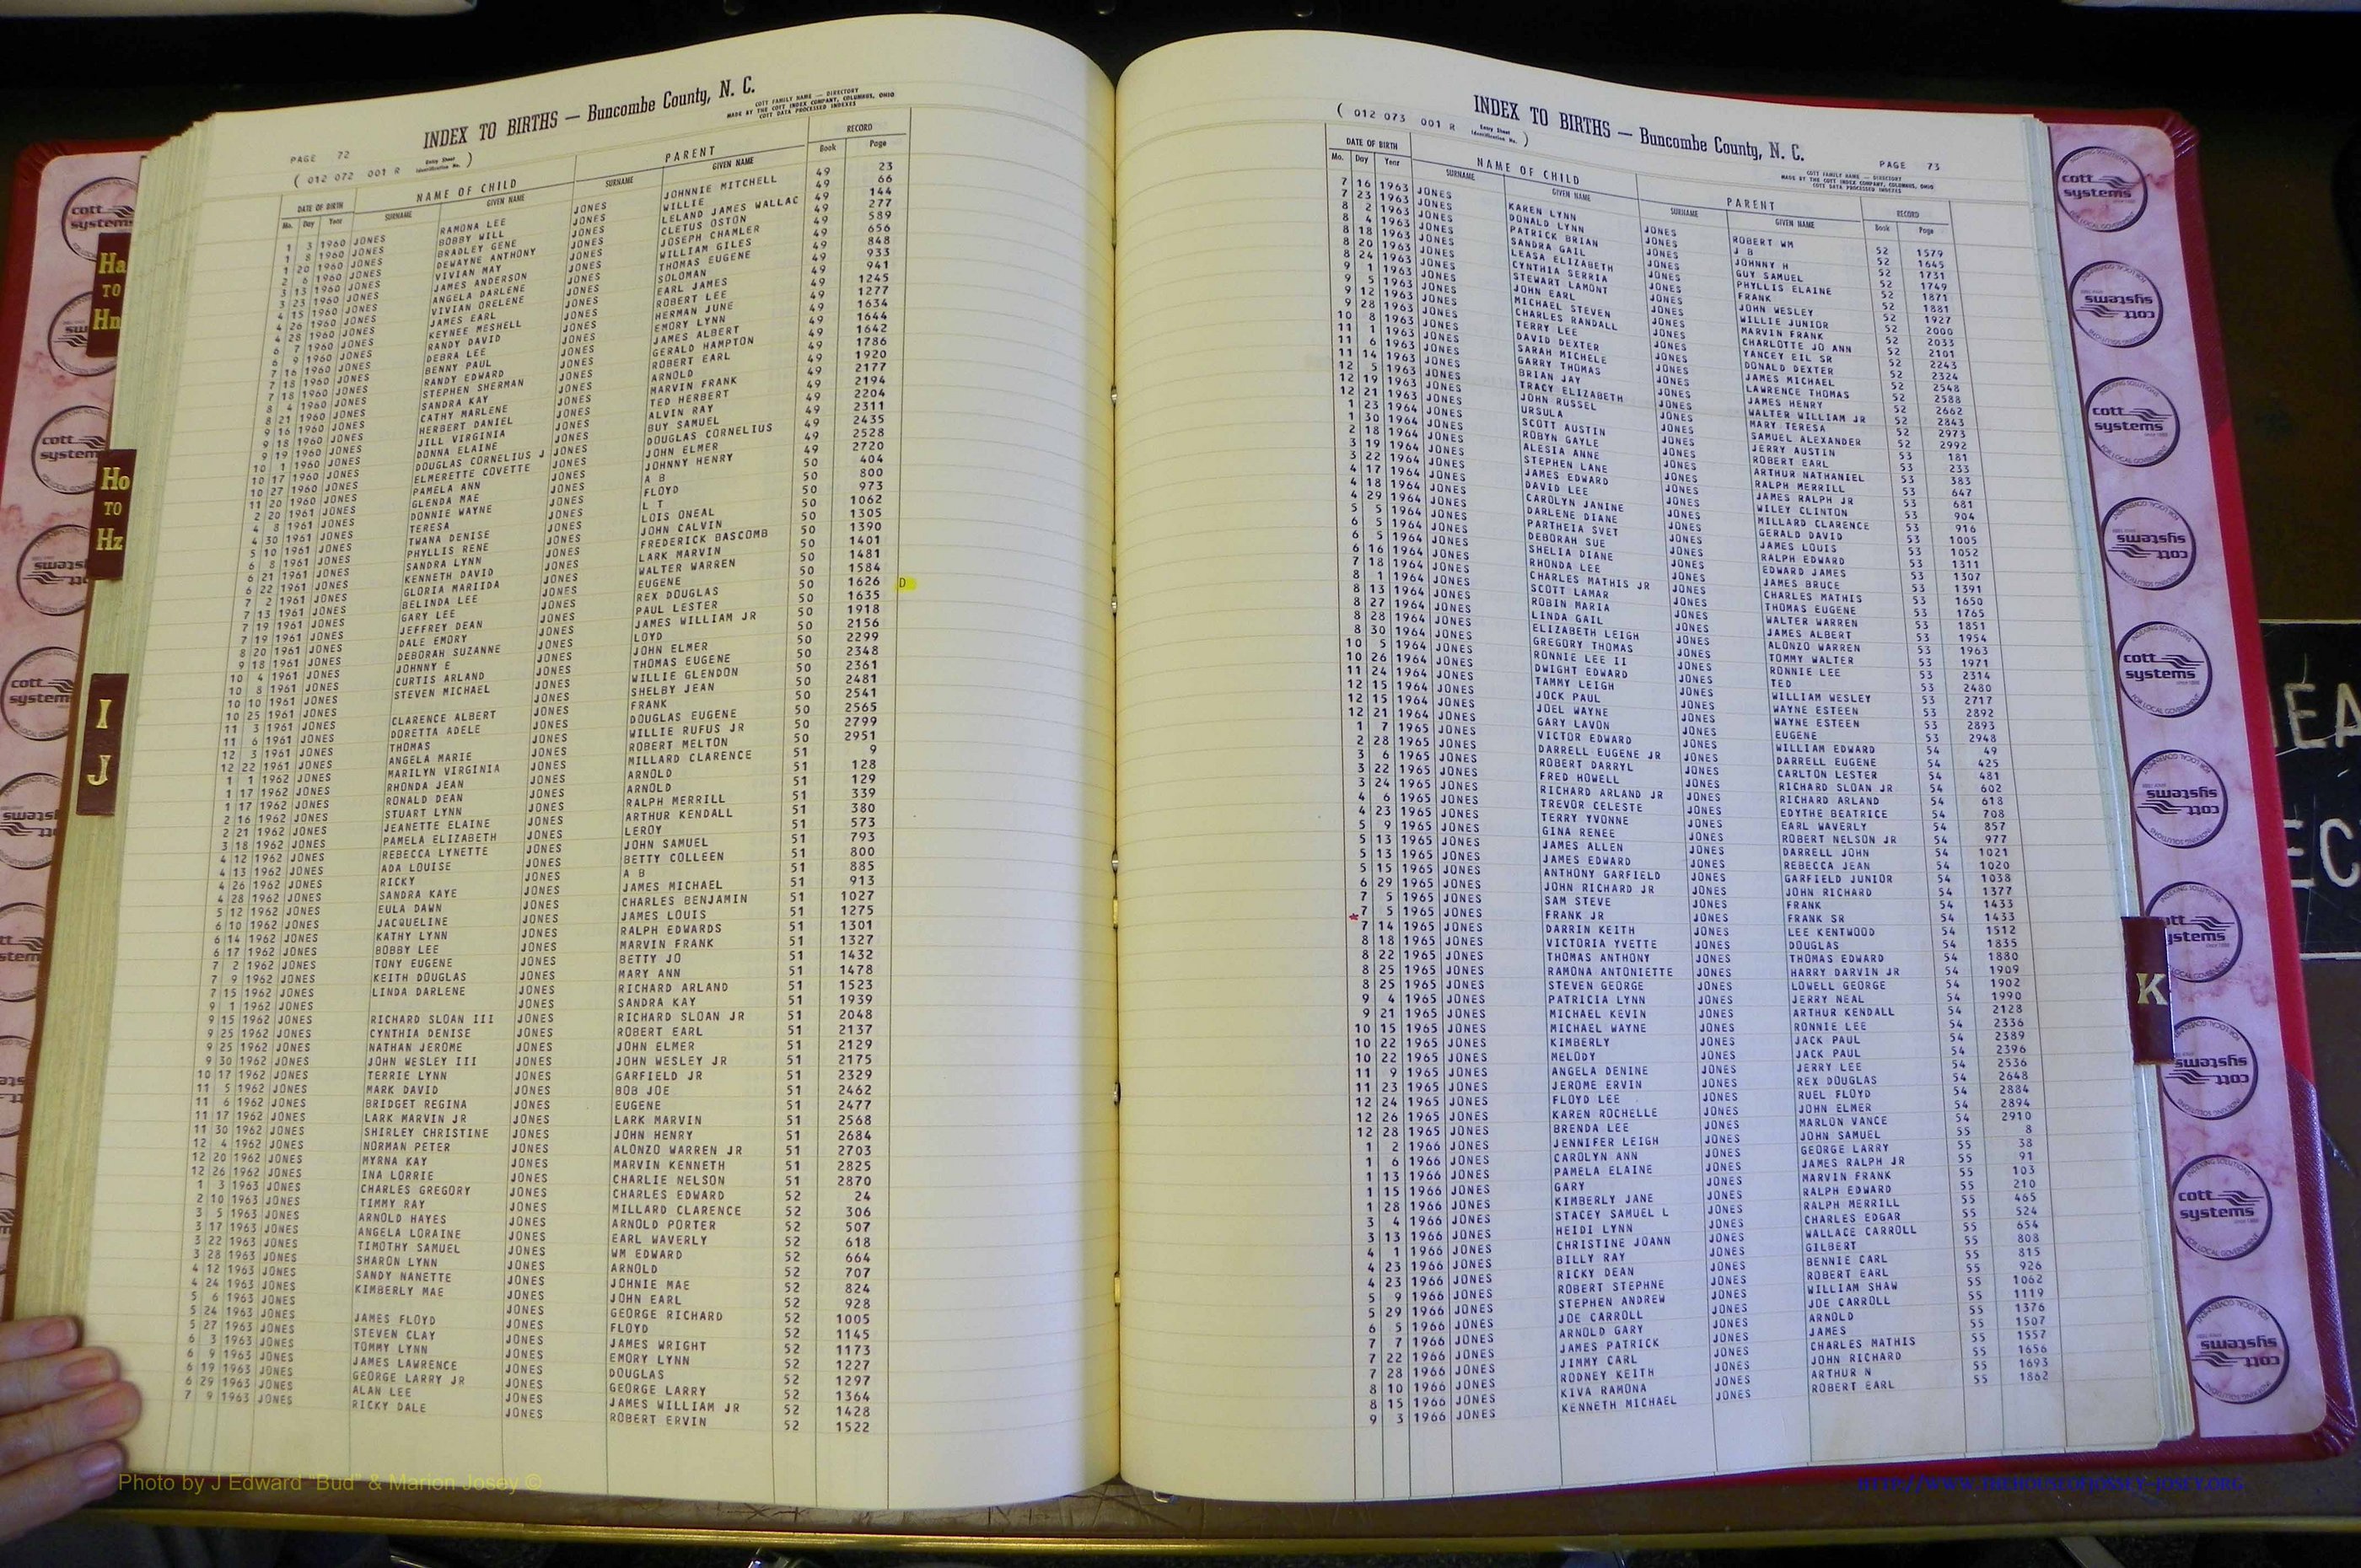 INDEX TO BIRTHS — Buncombe County, N. C.
COTT FAMILY NAME — DIRECTORY
MADE BY THE COTT INDEX COMPANY, COLUMBUS, OHIO
COTT DATA PROCESSED INDEXES
PAGE 72
( 012 072 001 R Entry Sheet Identification No. )
DATE OF BIRTH NAME OF CHILD PARENT RECORD
Mo. Day Year SURNAME GIVEN NAME SURNAME GIVEN NAME Book Page
1 3 1960 JONES RAMONA LEE JONES JOHNNIE MITCHELL 49 23
1 8 1960 JONES BOBBY WILL JONES WILLIE 49 66
1 20 1960 JONES BRADLEY GENE JONES LELAND JAMES WALLAC 49 144
2 6 1960 JONES DEWAYNE ANTHONY JONES CLETUS OSTON 49 277
3 13 1960 JONES VIVIAN MAY JONES JOSEPH CHAMLER 49 589
3 23 1960 JONES JAMES ANDERSON JONES WILLIAM GILES 49 656
4 15 1960 JONES ANGELA DARLENE JONES THOMAS EUGENE 49 848
4 26 1960 JONES VIVIAN ORELENE JONES SOLOMAN 49 933
4 28 1960 JONES JAMES EARL JONES EARL JAMES 49 941
6 7 1960 JONES KEYNEE MESHELL JONES ROBERT LEE 49 1245
6 9 1960 JONES RANDY DAVID JONES HERMAN JUNE 49 1277
7 16 1960 JONES DEBRA LEE JONES EMORY LYNN 49 1634
7 18 1960 JONES BENNY PAUL JONES JAMES ALBERT 49 1644
7 18 1960 JONES RANDY EDWARD JONES GERALD HAMPTON 49 1642
8 4 1960 JONES STEPHEN SHERMAN JONES ROBERT EARL 49 1786
8 21 1960 JONES SANDRA KAY JONES ARNOLD 49 1920
9 16 1960 JONES CATHY MARLENE JONES MARVIN FRANK 49 2177
9 18 1960 JONES HERBERT DANIEL JONES TED HERBERT 49 2194
9 19 1960 JONES JILL VIRGINIA JONES ALVIN RAY 49 2204
10 1 1960 JONES DONNA ELAINE JONES BUY SAMUEL 49 2311
10 17 1960 JONES DOUGLAS CORNELIUS J JONES DOUGLAS CORNELIUS 49 2435
10 27 1960 JONES ELMERETTE COVETTE JONES JOHN ELMER 49 2528
11 20 1960 JONES PAMELA ANN JONES JOHNNY HENRY 49 2720
2 20 1961 JONES GLENDA MAE JONES A B 50 404
4 8 1961 JONES DONNIE WAYNE JONES FLOYD 50 800
4 30 1961 JONES TERESA JONES L T 50 973
5 10 1961 JONES TWANA DENISE JONES LOIS ONEAL 50 1062
6 8 1961 JONES PHYLLIS RENE JONES JOHN CALVIN 50 1305
6 21 1961 JONES SANDRA LYNN JONES FREDERICK BASCOMB 50 1390
6 22 1961 JONES KENNETH DAVID JONES LARK MARVIN 50 1401
7 2 1961 JONES GLORIA MARIIDA JONES WALTER WARREN 50 1481
7 13 1961 JONES BELINDA LEE JONES EUGENE 50 1584
7 19 1961 JONES GARY LEE JONES REX DOUGLAS 50 1626 D
7 19 1961 JONES JEFFREY DEAN JONES PAUL LESTER 50 1635
8 20 1961 JONES DALE EMORY JONES JAMES WILLIAM JR 50 1918
9 18 1961 JONES DEBORAH SUZANNE JONES LOYD 50 2156
10 4 1961 JONES JOHNNY E JONES JOHN ELMER 50 2299
10 8 1961 JONES CURTIS ARLAND JONES THOMAS EUGENE 50 2348
10 10 1961 JONES STEVEN MICHAEL JONES WILLIE GLENDON 50 2361
10 25 1961 JONES JONES SHELBY JEAN 50 2481
11 3 1961 JONES CLARENCE ALBERT JONES FRANK 50 2541
11 6 1961 JONES DORETTA ADELE JONES DOUGLAS EUGENE 50 2565
12 3 1961 JONES THOMAS JONES WILLIE RUFUS JR 50 2799
12 22 1961 JONES ANGELA MARIE JONES ROBERT MELTON 50 2951
1 1 1962 JONES MARILYN VIRGINIA JONES MILLARD CLARENCE 51 9
1 17 1962 JONES RHONDA JEAN JONES ARNOLD 51 128
1 17 1962 JONES RONALD DEAN JONES ARNOLD 51 129
2 16 1962 JONES STUART LYNN JONES RALPH MERRILL 51 339
2 21 1962 JONES JEANETTE ELAINE JONES ARTHUR KENDALL 51 380
3 18 1962 JONES PAMELA ELIZABETH JONES LEROY 51 573
4 12 1962 JONES REBECCA LYNETTE JONES JOHN SAMUEL 51 793
4 13 1962 JONES ADA LOUISE JONES BETTY COLLEEN 51 800
4 26 1962 JONES RICKY JONES A B 51 885
4 28 1962 JONES SANDRA KAYE JONES JAMES MICHAEL 51 913
5 12 1962 JONES EULA DAWN JONES CHARLES BENJAMIN 51 1027
6 10 1962 JONES JACQUELINE JONES JAMES LOUIS 51 1275
6 14 1962 JONES KATHY LYNN JONES RALPH EDWARDS 51 1301
6 17 1962 JONES BOBBY LEE JONES MARVIN FRANK 51 1327
7 2 1962 JONES TONY EUGENE JONES BETTY JO 51 1432
7 9 1962 JONES KEITH DOUGLAS JONES MARY ANN 51 1478
7 15 1962 JONES LINDA DARLENE JONES RICHARD ARLAND 51 1523
9 1 1962 JONES JONES SANDRA KAY 51 1939
9 15 1962 JONES RICHARD SLOAN III JONES RICHARD SLOAN JR 51 2048
9 25 1962 JONES CYNTHIA DENISE JONES ROBERT EARL 51 2137
9 25 1962 JONES NATHAN JEROME JONES JOHN ELMER 51 2129
9 30 1962 JONES JOHN WESLEY III JONES JOHN WESLEY JR 51 2175
10 17 1962 JONES TERRIE LYNN JONES GARFIELD JR 51 2329
11 5 1962 JONES MARK DAVID JONES BOB JOE 51 2462
11 6 1962 JONES BRIDGET REGINA JONES EUGENE 51 2477
11 17 1962 JONES LARK MARVIN JR JONES LARK MARVIN 51 2568
11 30 1962 JONES SHIRLEY CHRISTINE JONES JOHN HENRY 51 2684
12 4 1962 JONES NORMAN PETER JONES ALONZO WARREN JR 51 2703
12 20 1962 JONES MYRNA KAY JONES MARVIN KENNETH 51 2825
12 26 1962 JONES INA LORRIE JONES CHARLIE NELSON 51 2870
1 3 1963 JONES CHARLES GREGORY JONES CHARLES EDWARD 52 24
2 10 1963 JONES TIMMY RAY JONES MILLARD CLARENCE 52 306
3 5 1963 JONES ARNOLD HAYES JONES ARNOLD PORTER 52 507
3 17 1963 JONES ANGELA LORAINE JONES EARL WAVERLY 52 618
3 22 1963 JONES TIMOTHY SAMUEL JONES WM EDWARD 52 664
3 28 1963 JONES SHARON LYNN JONES ARNOLD 52 707
4 12 1963 JONES SANDY NANETTE JONES JOHNIE MAE 52 824
4 24 1963 JONES KIMBERLY MAE JONES JOHN EARL 52 928
5 6 1963 JONES JONES GEORGE RICHARD 52 1005
5 24 1963 JONES JAMES FLOYD JONES FLOYD 52 1145
5 27 1963 JONES STEVEN CLAY JONES JAMES WRIGHT 52 1173
6 3 1963 JONES TOMMY LYNN JONES EMORY LYNN 52 1227
6 9 1963 JONES JAMES LAWRENCE JONES DOUGLAS 52 1297
6 19 1963 JONES GEORGE LARRY JR JONES GEORGE LARRY 52 1364
6 29 1963 JONES ALAN LEE JONES JAMES WILLIAM JR 52 1428
7 9 1963 JONES RICKY DALE JONES ROBERT ERVIN 52 1522
Ha TO Hn
Ho TO Hz
I J
Photo by J Edward "Bud" & Marion Josey ©
INDEX TO BIRTHS — Buncombe County, N. C.
( 012 073 001 R Entry Sheet Identification No. )
PAGE 73
COTT FAMILY NAME — DIRECTORY
MADE BY THE COTT INDEX COMPANY, COLUMBUS, OHIO
COTT DATA PROCESSED INDEXES
DATE OF BIRTH NAME OF CHILD PARENT RECORD
Mo. Day Year SURNAME GIVEN NAME SURNAME GIVEN NAME Book Page
7 16 1963 JONES KAREN LYNN JONES ROBERT WM 52 1579
7 23 1963 JONES DONALD LYNN JONES J B 52 1645
8 2 1963 JONES PATRICK BRIAN JONES JOHNNY H 52 1731
8 4 1963 JONES SANDRA GAIL JONES GUY SAMUEL 52 1749
8 18 1963 JONES LEASA ELIZABETH JONES PHYLLIS ELAINE 52 1871
8 20 1963 JONES CYNTHIA SERRIA JONES FRANK 52 1881
8 24 1963 JONES STEWART LAMONT JONES JOHN WESLEY 52 1927
9 1 1963 JONES JOHN EARL JONES WILLIE JUNIOR 52 2000
9 5 1963 JONES MICHAEL STEVEN JONES MARVIN FRANK 52 2033
9 12 1963 JONES CHARLES RANDALL JONES CHARLOTTE JO ANN 52 2101
9 28 1963 JONES TERRY LEE JONES YANCEY EIL SR 52 2243
10 8 1963 JONES DAVID DEXTER JONES DONALD DEXTER 52 2324
11 1 1963 JONES SARAH MICHELE JONES JAMES MICHAEL 52 2548
11 6 1963 JONES GARRY THOMAS JONES LAWRENCE THOMAS 52 2588
11 14 1963 JONES BRIAN JAY JONES JAMES HENRY 52 2662
12 5 1963 JONES TRACY ELIZABETH JONES WALTER WILLIAM JR 52 2843
12 19 1963 JONES JOHN RUSSEL JONES MARY TERESA 52 2973
12 21 1963 JONES URSULA JONES SAMUEL ALEXANDER 52 2992
1 23 1964 JONES SCOTT AUSTIN JONES JERRY AUSTIN 53 181
1 30 1964 JONES ROBYN GAYLE JONES ROBERT EARL 53 233
2 18 1964 JONES ALESIA ANNE JONES ARTHUR NATHANIEL 53 383
3 19 1964 JONES STEPHEN LANE JONES RALPH MERRILL 53 647
3 22 1964 JONES JAMES EDWARD JONES JAMES RALPH JR 53 681
4 17 1964 JONES DAVID LEE JONES WILEY CLINTON 53 904
4 18 1964 JONES CAROLYN JANINE JONES MILLARD CLARENCE 53 916
4 29 1964 JONES DARLENE DIANE JONES GERALD DAVID 53 1005
5 5 1964 JONES PARTHEIA SVET JONES JAMES LOUIS 53 1052
6 5 1964 JONES DEBORAH SUE JONES RALPH EDWARD 53 1311
6 5 1964 JONES SHELIA DIANE JONES EDWARD JAMES 53 1307
6 16 1964 JONES RHONDA LEE JONES JAMES BRUCE 53 1391
7 18 1964 JONES CHARLES MATHIS JR JONES CHARLES MATHIS 53 1650
8 1 1964 JONES SCOTT LAMAR JONES THOMAS EUGENE 53 1765
8 13 1964 JONES ROBIN MARIA JONES WALTER WARREN 53 1851
8 27 1964 JONES LINDA GAIL JONES JAMES ALBERT 53 1954
8 28 1964 JONES ELIZABETH LEIGH JONES ALONZO WARREN 53 1963
8 30 1964 JONES GREGORY THOMAS JONES TOMMY WALTER 53 1971
10 5 1964 JONES RONNIE LEE II JONES RONNIE LEE 53 2314
10 26 1964 JONES DWIGHT EDWARD JONES TED 53 2480
11 24 1964 JONES TAMMY LEIGH JONES WILLIAM WESLEY 53 2717
12 15 1964 JONES JOCK PAUL JONES WAYNE ESTEEN 53 2892
12 15 1964 JONES JOEL WAYNE JONES WAYNE ESTEEN 53 2893
12 21 1964 JONES GARY LAVON JONES EUGENE 53 2948
1 7 1965 JONES VICTOR EDWARD JONES WILLIAM EDWARD 54 49
2 28 1965 JONES DARRELL EUGENE JR JONES DARRELL EUGENE 54 425
3 6 1965 JONES ROBERT DARRYL JONES CARLTON LESTER 54 481
3 22 1965 JONES FRED HOWELL JONES RICHARD SLOAN JR 54 602
3 24 1965 JONES RICHARD ARLAND JR JONES RICHARD ARLAND 54 618
4 6 1965 JONES TREVOR CELESTE JONES EDYTHE BEATRICE 54 708
4 23 1965 JONES TERRY YVONNE JONES EARL WAVERLY 54 857
5 9 1965 JONES GINA RENEE JONES ROBERT NELSON JR 54 977
5 13 1965 JONES JAMES ALLEN JONES DARRELL JOHN 54 1021
5 13 1965 JONES JAMES EDWARD JONES REBECCA JEAN 54 1020
5 15 1965 JONES ANTHONY GARFIELD JONES GARFIELD JUNIOR 54 1038
6 29 1965 JONES JOHN RICHARD JR JONES JOHN RICHARD 54 1377
7 5 1965 JONES SAM STEVE JONES FRANK 54 1433
* 7 5 1965 JONES FRANK JR JONES FRANK SR 54 1433
7 14 1965 JONES DARRIN KEITH JONES LEE KENTWOOD 54 1512
8 18 1965 JONES VICTORIA YVETTE JONES DOUGLAS 54 1835
8 22 1965 JONES THOMAS ANTHONY JONES THOMAS EDWARD 54 1880
8 25 1965 JONES RAMONA ANTONIETTE JONES HARRY DARVIN JR 54 1909
8 25 1965 JONES STEVEN GEORGE JONES LOWELL GEORGE 54 1902
9 4 1965 JONES PATRICIA LYNN JONES JERRY NEAL 54 1990
9 21 1965 JONES MICHAEL KEVIN JONES ARTHUR KENDALL 54 2128
10 15 1965 JONES MICHAEL WAYNE JONES RONNIE LEE 54 2336
10 22 1965 JONES KIMBERLY JONES JACK PAUL 54 2389
10 22 1965 JONES MELODY JONES JACK PAUL 54 2396
11 9 1965 JONES ANGELA DENINE JONES JERRY LEE 54 2536
11 23 1965 JONES JEROME ERVIN JONES REX DOUGLAS 54 2648
12 24 1965 JONES FLOYD LEE JONES RUEL FLOYD 54 2884
12 26 1965 JONES KAREN ROCHELLE JONES JOHN ELMER 54 2894
12 28 1965 JONES BRENDA LEE JONES MARLON VANCE 54 2910
1 2 1966 JONES JENNIFER LEIGH JONES JOHN SAMUEL 55 8
1 6 1966 JONES CAROLYN ANN JONES GEORGE LARRY 55 38
1 13 1966 JONES PAMELA ELAINE JONES JAMES RALPH JR 55 91
1 15 1966 JONES GARY JONES MARVIN FRANK 55 103
1 28 1966 JONES KIMBERLY JANE JONES RALPH EDWARD 55 210
3 4 1966 JONES STACEY SAMUEL L JONES RALPH MERRILL 55 465
3 13 1966 JONES HEIDI LYNN JONES CHARLES EDGAR 55 524
4 1 1966 JONES CHRISTINE JOANN JONES WALLACE CARROLL 55 654
4 23 1966 JONES BILLY RAY JONES GILBERT 55 808
4 23 1966 JONES RICKY DEAN JONES BENNIE CARL 55 815
5 9 1966 JONES ROBERT STEPHNE JONES ROBERT EARL 55 926
5 29 1966 JONES STEPHEN ANDREW JONES WILLIAM SHAW 55 1062
6 5 1966 JONES JOE CARROLL JONES JOE CARROLL 55 1119
7 7 1966 JONES ARNOLD GARY JONES ARNOLD 55 1376
7 22 1966 JONES JAMES PATRICK JONES JAMES 55 1507
7 28 1966 JONES JIMMY CARL JONES CHARLES MATHIS 55 1557
8 10 1966 JONES RODNEY KEITH JONES JOHN RICHARD 55 1656
8 15 1966 JONES KIVA RAMONA JONES ARTHUR N 55 1693
9 3 1966 JONES KENNETH MICHAEL JONES ROBERT EARL 55 1862
K
cott systems
INDEXING SOLUTIONS
FOR LOCAL GOVERNMENT
HTTP://WWW.THEHOUSEOFJOSSEY-JOSEY.ORG